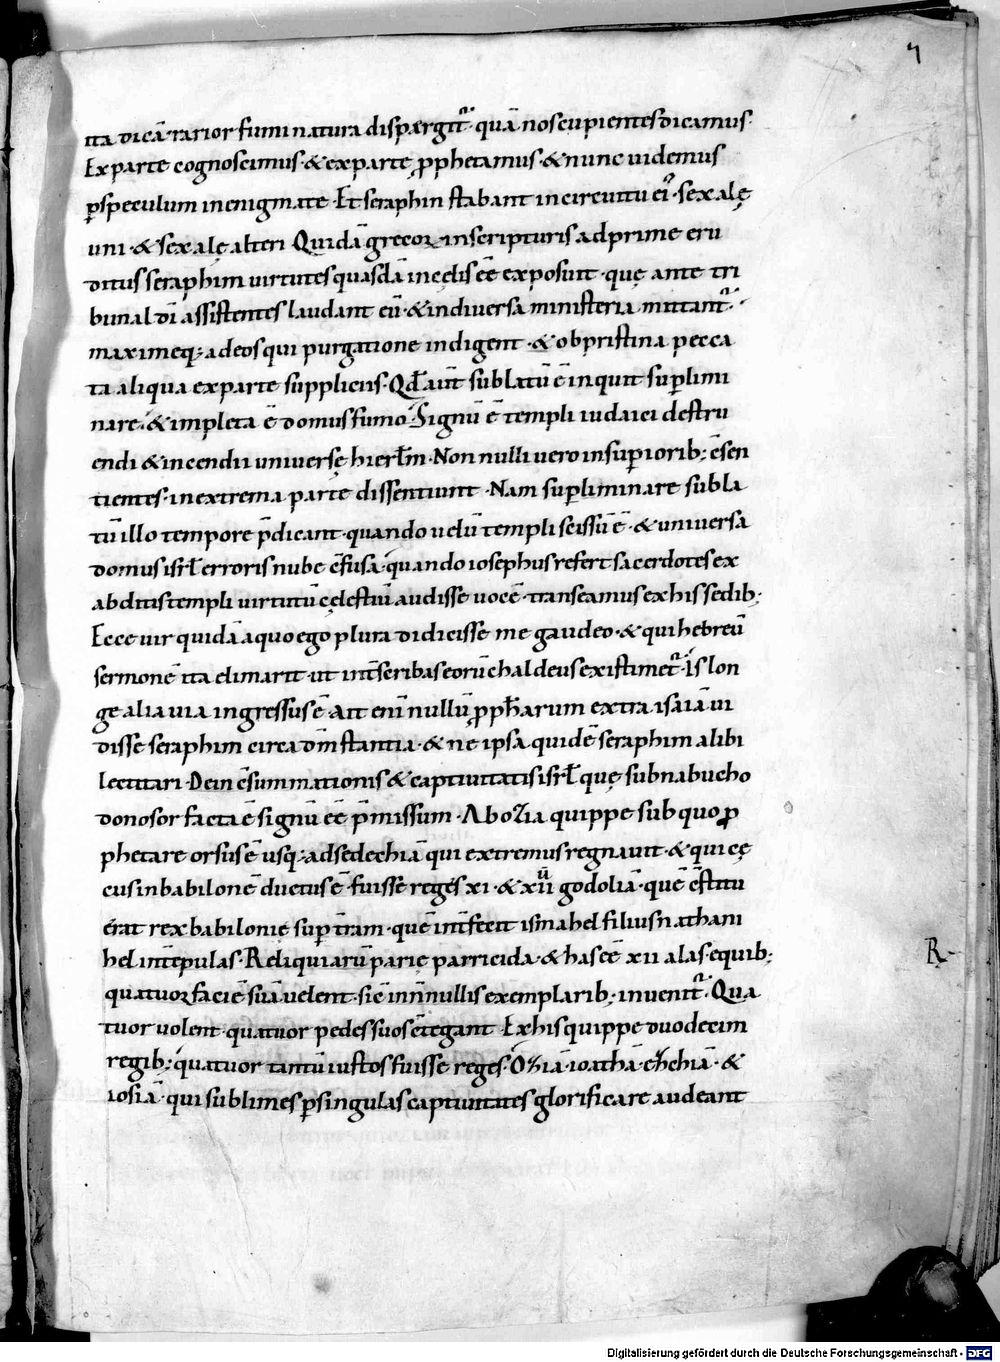 7
ita dicā rarior fumi natura dispærgit᷑ · quā nos cupientes dicamus ·
Ex parte cognoscimus · & ex parte ꝓphetamus · & nunc uidemus
ꝑ speculum in enigmate · Et seraphin stabant in circuitu ei᷒ · sex alę
uni · & sex alę alteri Quidā grecoꝝ in scripturis adprime eru
ditus seraphim uirtutes quasdā in cęlis eē exposuit · quę ante tri
bunal dī assistentes laudant eū · & in diuersa ministeria mittant᷑ ·
maximeq; ad eos qui purgatione indigent · & ob pristina pecca
ta aliqua ex parte suppliciis · Qđ aūt sublatū ē inquit suꝑlimi
nare · & impleta ē domus fumo · Signū ē templi iudaici destru
endi & incendii uniuersę hierlm̄ · Non nulli uero in suꝑiorib; c̄sen
tientes · in extrema parte dissentiunt · Nam suꝑliminare subla
tū illo tempore p̄dicant · quando uelū templi scissū ē · & uniuersa
domus isrł erroris nube c̄fusa · quando iosephus refert sacerdotes ex
abditis templi uirtutū cęlestiū audisse uocē · transeamus ex his sedib; ·
Ecce uir quidā a quo ego plura didicisse me gaudeo · & qui hebreū
sermonē ita elimarit · ut int̄ scribas eorū chaldeus existimet᷑ · is lon
ge alia uia ingressus ē Ait enī nullū ꝓpħarum extra isaiā ui
disse seraphim circa dm̄ stantia · & ne ipsa quidē seraphim alibi
lectitari · Dein c̄summationis & captiuitatis isrł quę sub nabucho
donosor facta ē signū eē p̄missum · Ab ozia quippe sub quo ꝓ
phetare orsus ē usq; ad sedechiā qui extremus regnauit · & qui cę
cus in babilonē ductus ē · fuisse reges xi · & xii godoliā · quē c̄stitu
erat rex babilonię suꝑ t̄ram · quē int̄fecit ismahel filius nathani
hel int̄ epulas · Reliquiarū parię parricida · & has eē xii alas · e quib;
quatuor faciē suā uelent · sic in nōnullis exemplarib; inuenit᷑ · Qua
tuor uolent · quatuor pedes suos c̄tegant Ex his quippe duodecim
regib; · quatuor tantū iustos fuisse reges · Oziā · ioathā · ezechiā · &
iosiā · qui sublimes ꝑ singulas captiuitates glorificare audeant
R-
Digitalisierung gefördert durch die Deutsche Forschungsgemeinschaft - DFG